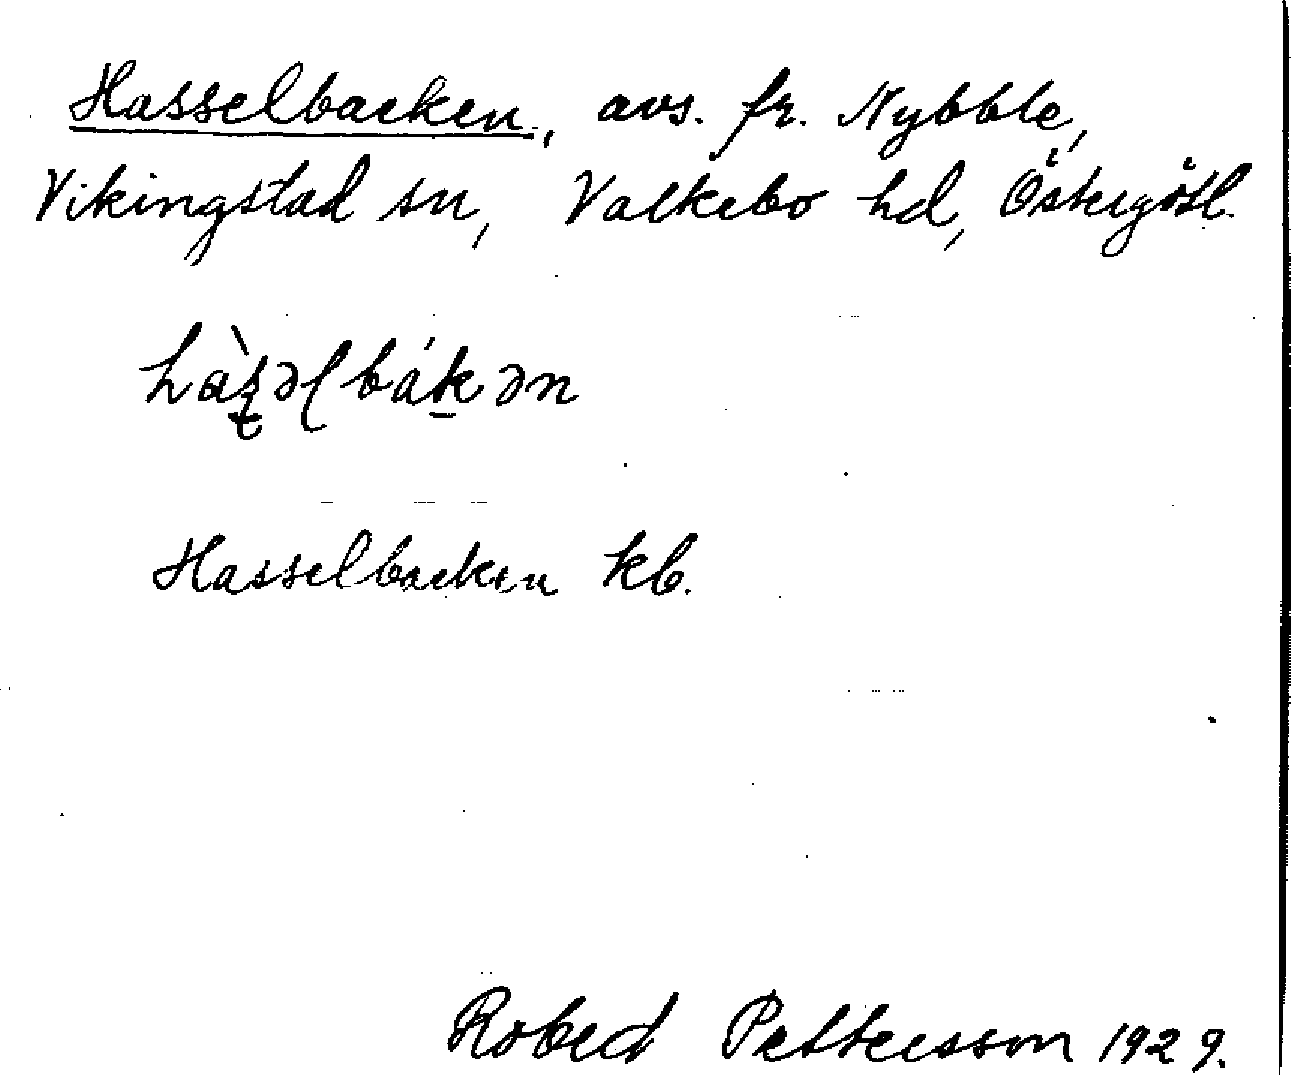 Hasselbacken, avs. fr. Nybble,
Vikingstad sn, Valkebo hd, Östergötl.
Hasselbacken kb.
Robert Pettersson 1929.